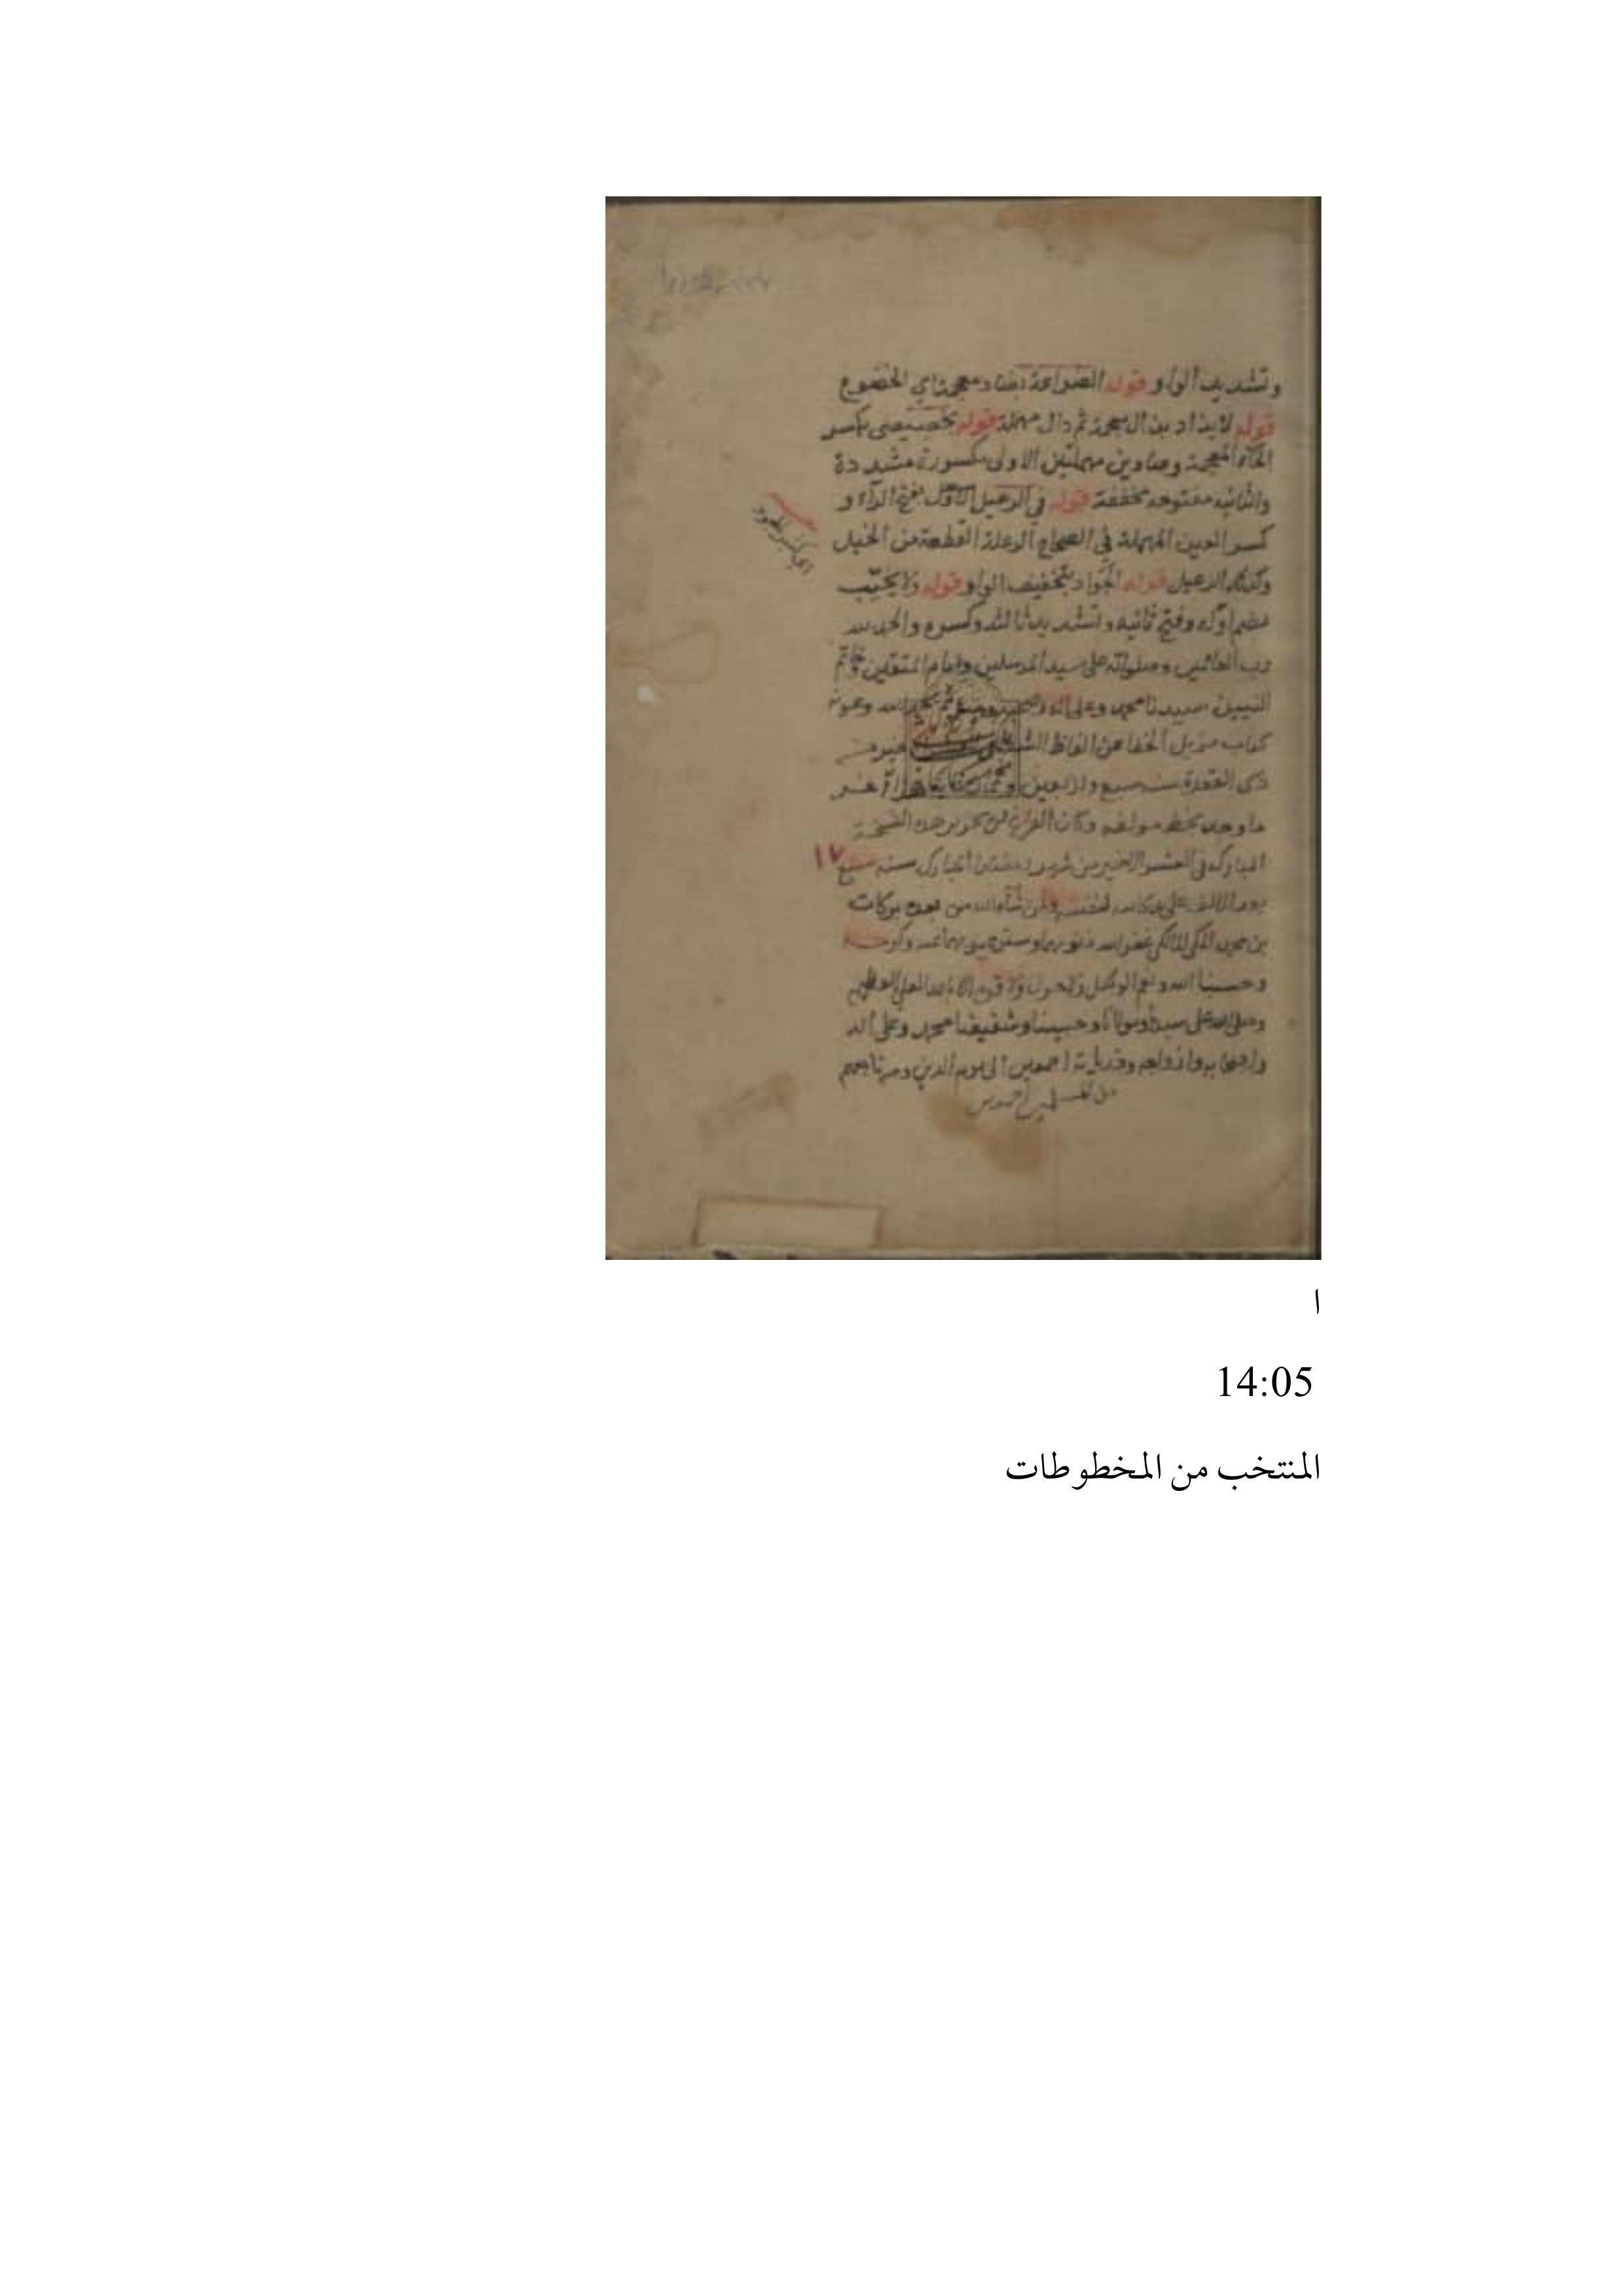 وتشديد الواو قوله الضراعة بضاد معجمة اي الخضوع
قوله لاين اد بذال معجمة ثم دال مهملة قوله بكسر
الخاء المعجمة وصادين مهملتين الاولى مكسورة مشددة
والثانيه مفتوحه مخففة قوله في الرعيل الاول بفتح الراء و
كسر العين المهملة في الصحاح الرعلة القطعة من الخيل
وكذلك الرعيل قوله الجواد بتخفيف الواو قوله ولا يخيب
بضم اوله وفتح ثانيه وتشديد ثالثه وكسره والحمد لله
رب العالمين وصلى الله على سيد المرسلين وامام المتقين وخاتم
النبيين سيدنا محمد وعلى اله تم بحمد الله وعونه
كتاب مزيل الخفا عن الفاظ
ذي القعدة سنة سبع واربعين اخر
ما وجد بخط مولفه وكان الفراغ من تحرير هذه النسخة
المباركة في العشر الاخير من شهر رمضان المبارك سنه سبع ١٧
بعد الالف على يد لنفسه ولمن شاء الله من بعده بركات
بن محمد المكي المالكي غفر الله ذنوبهما وستر عيوبهما
وحسبنا الله ونعم الوكيل ولا حول ولا قوة الا بالله العلي العظيم
وصلى الله على سيدنا ومولانا وحبيبنا وشفيعنا محمد وعلى اله
واصحابه وازواجه وذرياته اجمعين الى يوم الدين
ا
14:05
المنتخب من المخطوطات